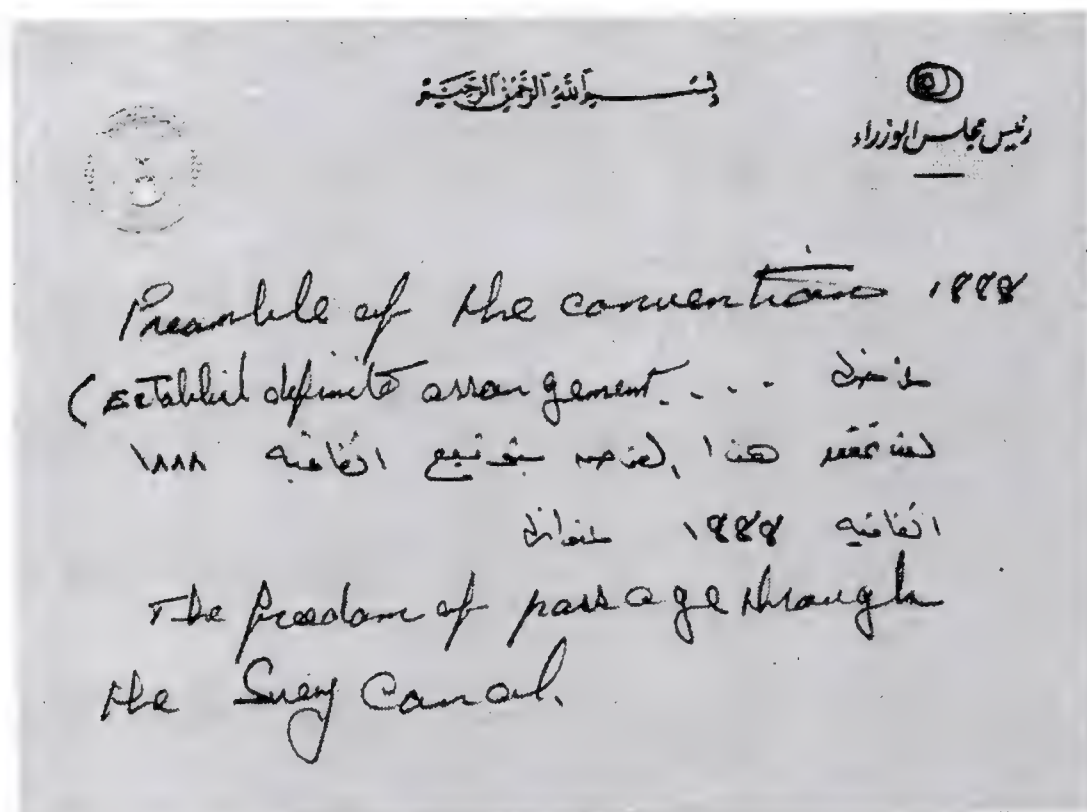 بسم الله الرحمن الرحيم
رئيس مجلس الوزراء
Preamble of the convention 1888
(Establish definite arrangement. . . .
هذا بتوقيع اتفاقية ١٨٨٨
اتفاقيه 1888
The freedom of passage through
the Suez Canal.